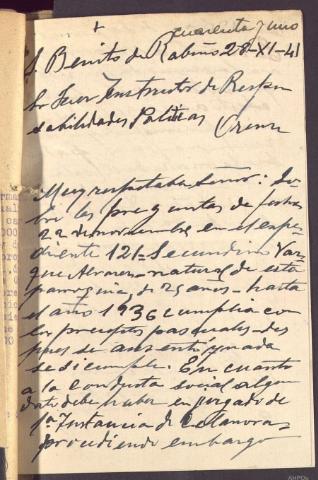 cuarenta y uno
S. Benito de Rabiño 28-XI-41
Sr Juez Instructor de Respon
sabilidades Politicas
Orense
Muy respetable Señor: So
bre las preguntas de fecha
22 de noviembre en el expe
diente 121- Secundino Vaz
quez Alvarez - natural de esta
parroquia, de 25 años - hasta
el año 1936 cumplia co
los preceptos pascuales - des
pues se ausentó y nada
se di cumple. En cuanto
a la conducta social algun
dato debe haber en juzgado de
1ª Instancia de Celanova -
procediendo embargo
AHPOu